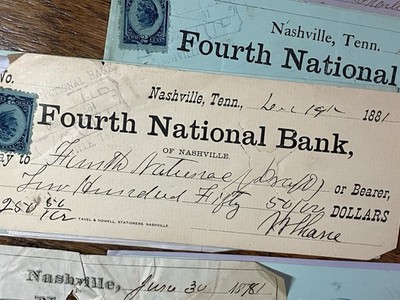 Nashville, Tenn.
Fourth National
No.
NATIONAL BANK
Nashville, Tenn., Dec 19th 1881
Fourth National Bank,
OF NASHVILLE.
ay to Fourth National (Draft) or Bearer,
Two Hundred Fifty 50/100 DOLLARS
250 50/100
TAVEL & HOWELL, STATIONERS, NASHVILLE
Nashville, June 30 1881